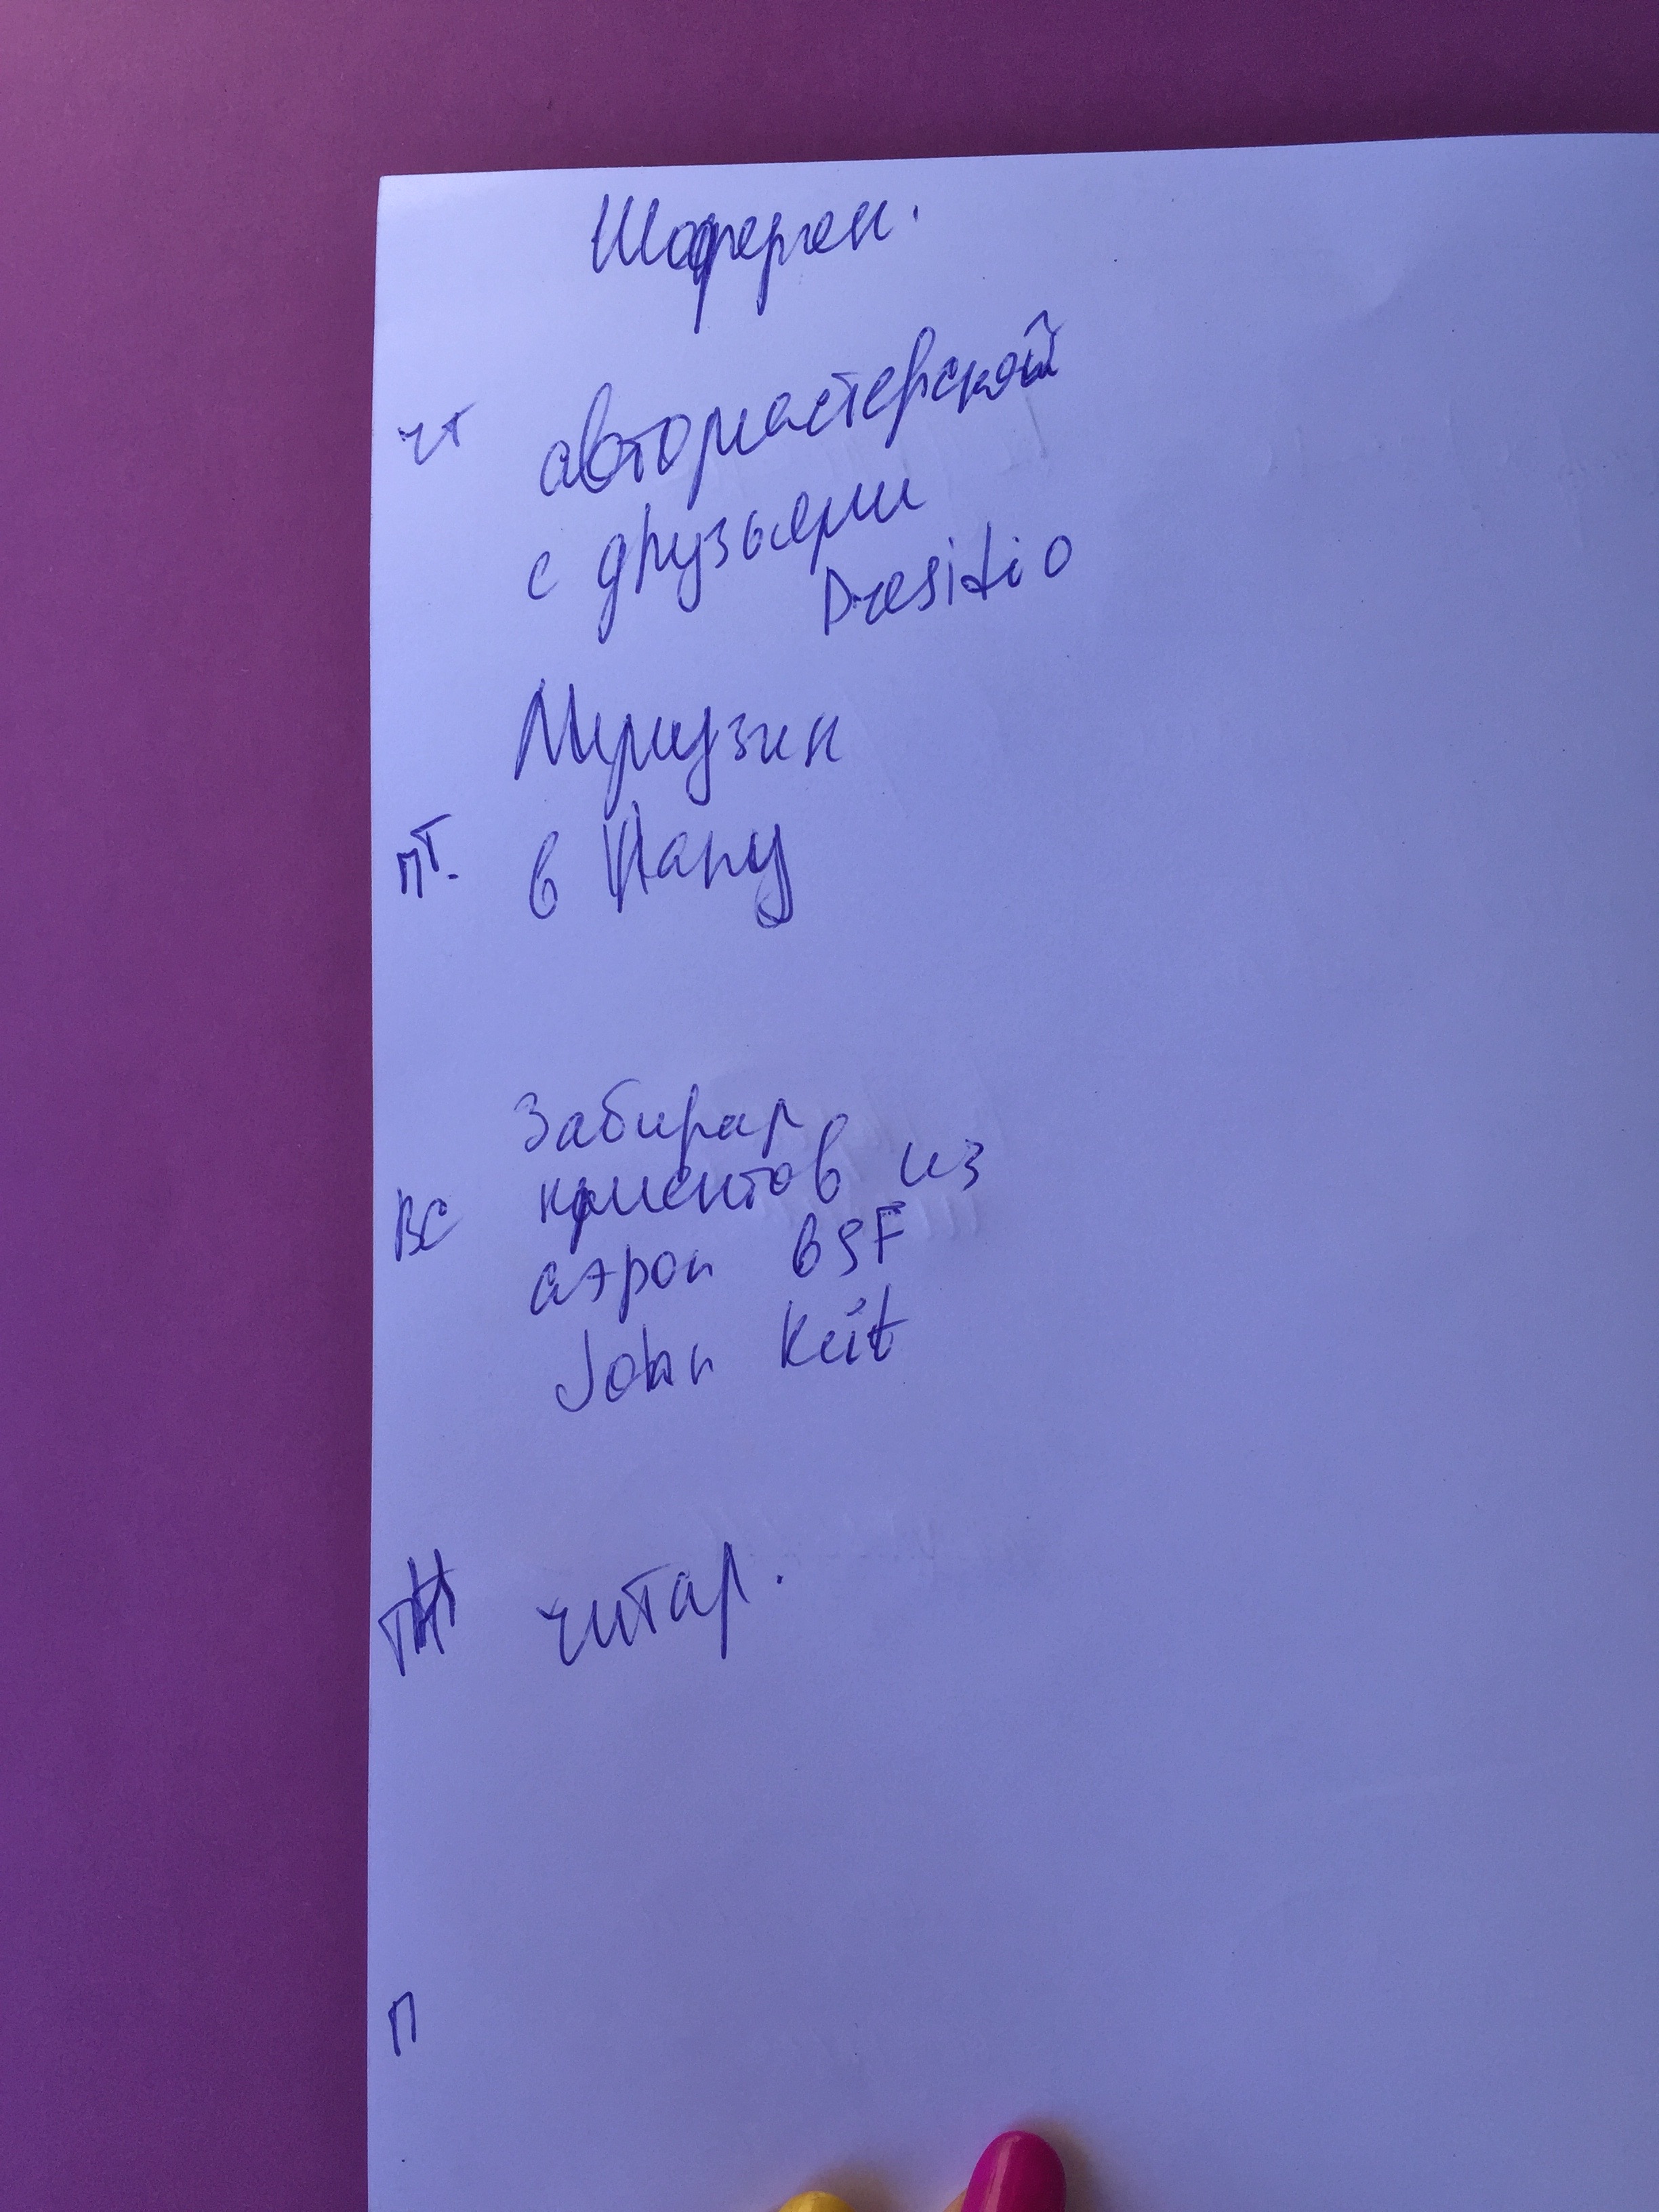 Шофереп.
чт автомастерской
с друзьями
Prositio
Лимузин
пт. в Напу
Забирал
ВС клиентов из
аэроп в SF
John Keit
читал.
П